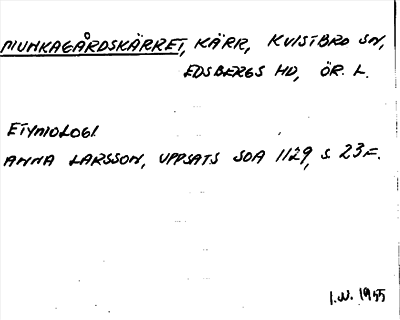 MUNKAGÅRDSKÄRRET, KÄRR, KVISTBRO SN,
EDSBERGS HD, ÖR. L.
ETYMOLOGI
ANNA LARSSON, UPPSATS SOA 1129, S. 23F.
I.W. 1955